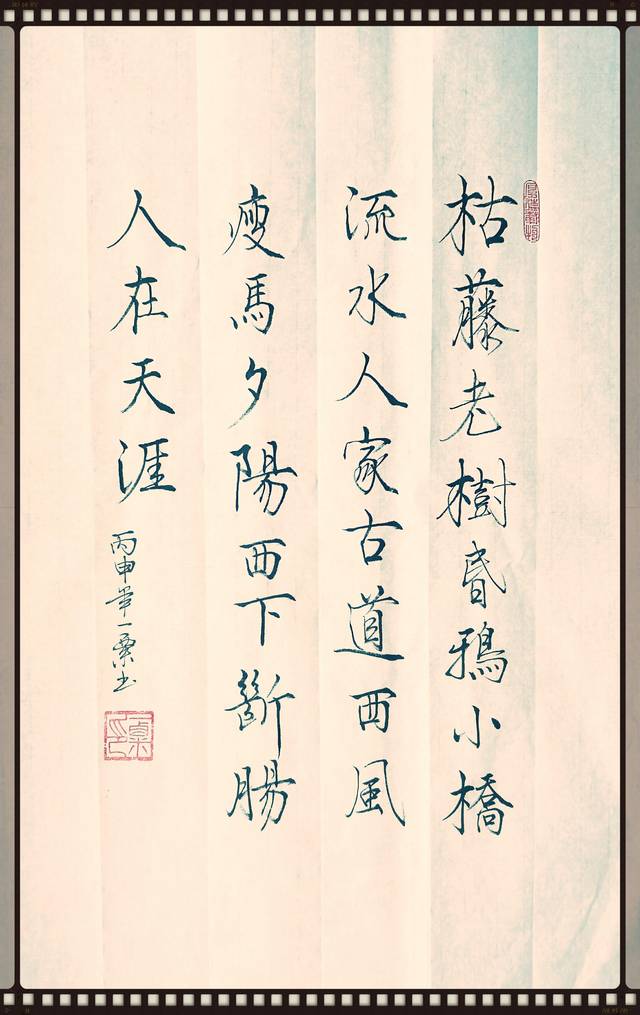 枯藤老樹昏鴉小橋
流水人家古道西風
瘦馬夕陽西下斷腸
人在天涯
丙申年一粟书